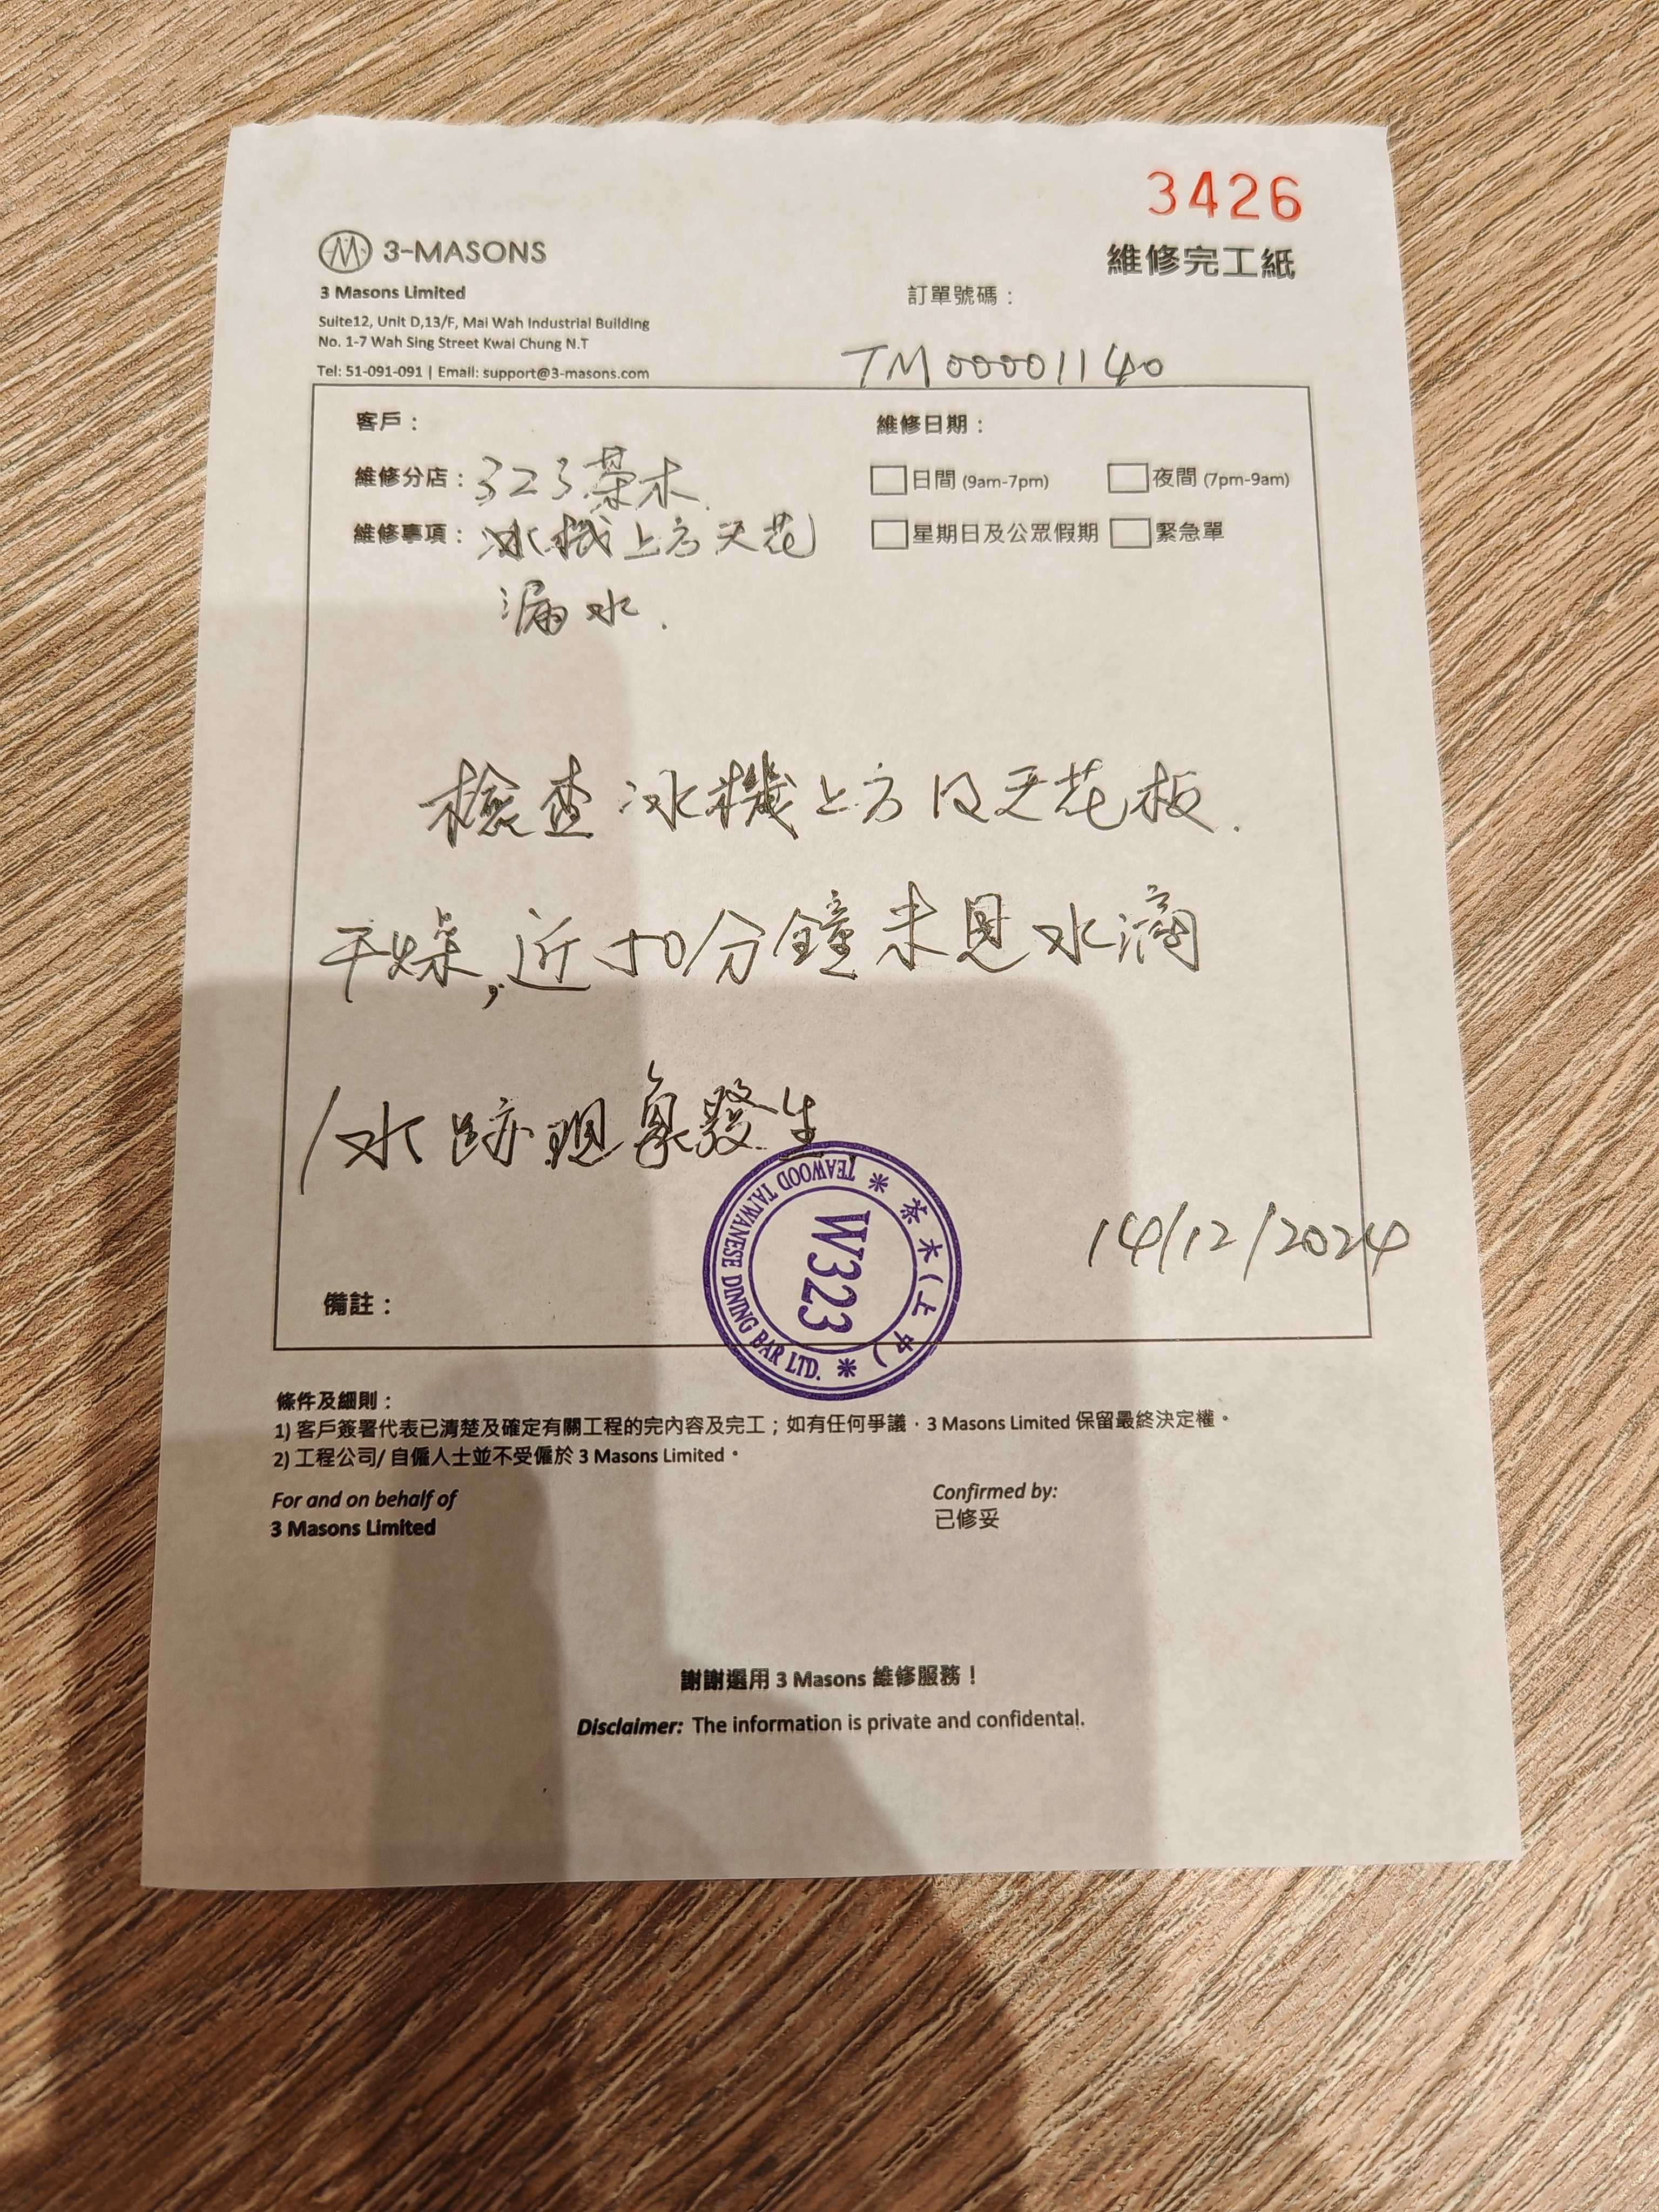 3426
3-MASONS
維修完工紙
3 Masons Limited
訂單號碼：
Suite12, Unit D,13/F, Mai Wah Industrial Building
No. 1-7 Wah Sing Street Kwai Chung N.T
TM00001140
Tel: 51-091-091 | Email: support@3-masons.com
客戶：
維修日期：
維修分店：323茶木
日間 (9am-7pm) 夜間 (7pm-9am)
維修事項：冰機上方天花
星期日及公眾假期 緊急單
漏水.
檢查冰機上方及天花板.
干燥,近50分鐘未見水滴
/水跡現象發生
TEAWOOD TAIWANESE DINING BAR LTD. * 茶木(上中) *
W323
14/12/2024
備註：
條件及細則：
1) 客戶簽署代表已清楚及確定有關工程的完內容及完工；如有任何爭議，3 Masons Limited 保留最終決定權。
2) 工程公司/ 自僱人士並不受僱於 3 Masons Limited。
For and on behalf of
3 Masons Limited
Confirmed by:
已修妥
謝謝選用 3 Masons 維修服務！
Disclaimer: The information is private and confidental.